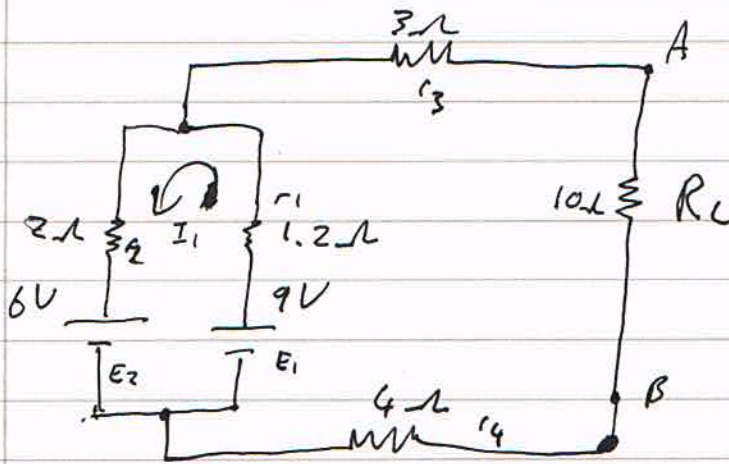 3Ω
A
r3
r1
10Ω
RL
2Ω
r2
I1
1.2Ω
6V
9V
E2
E1
4Ω
r4
B